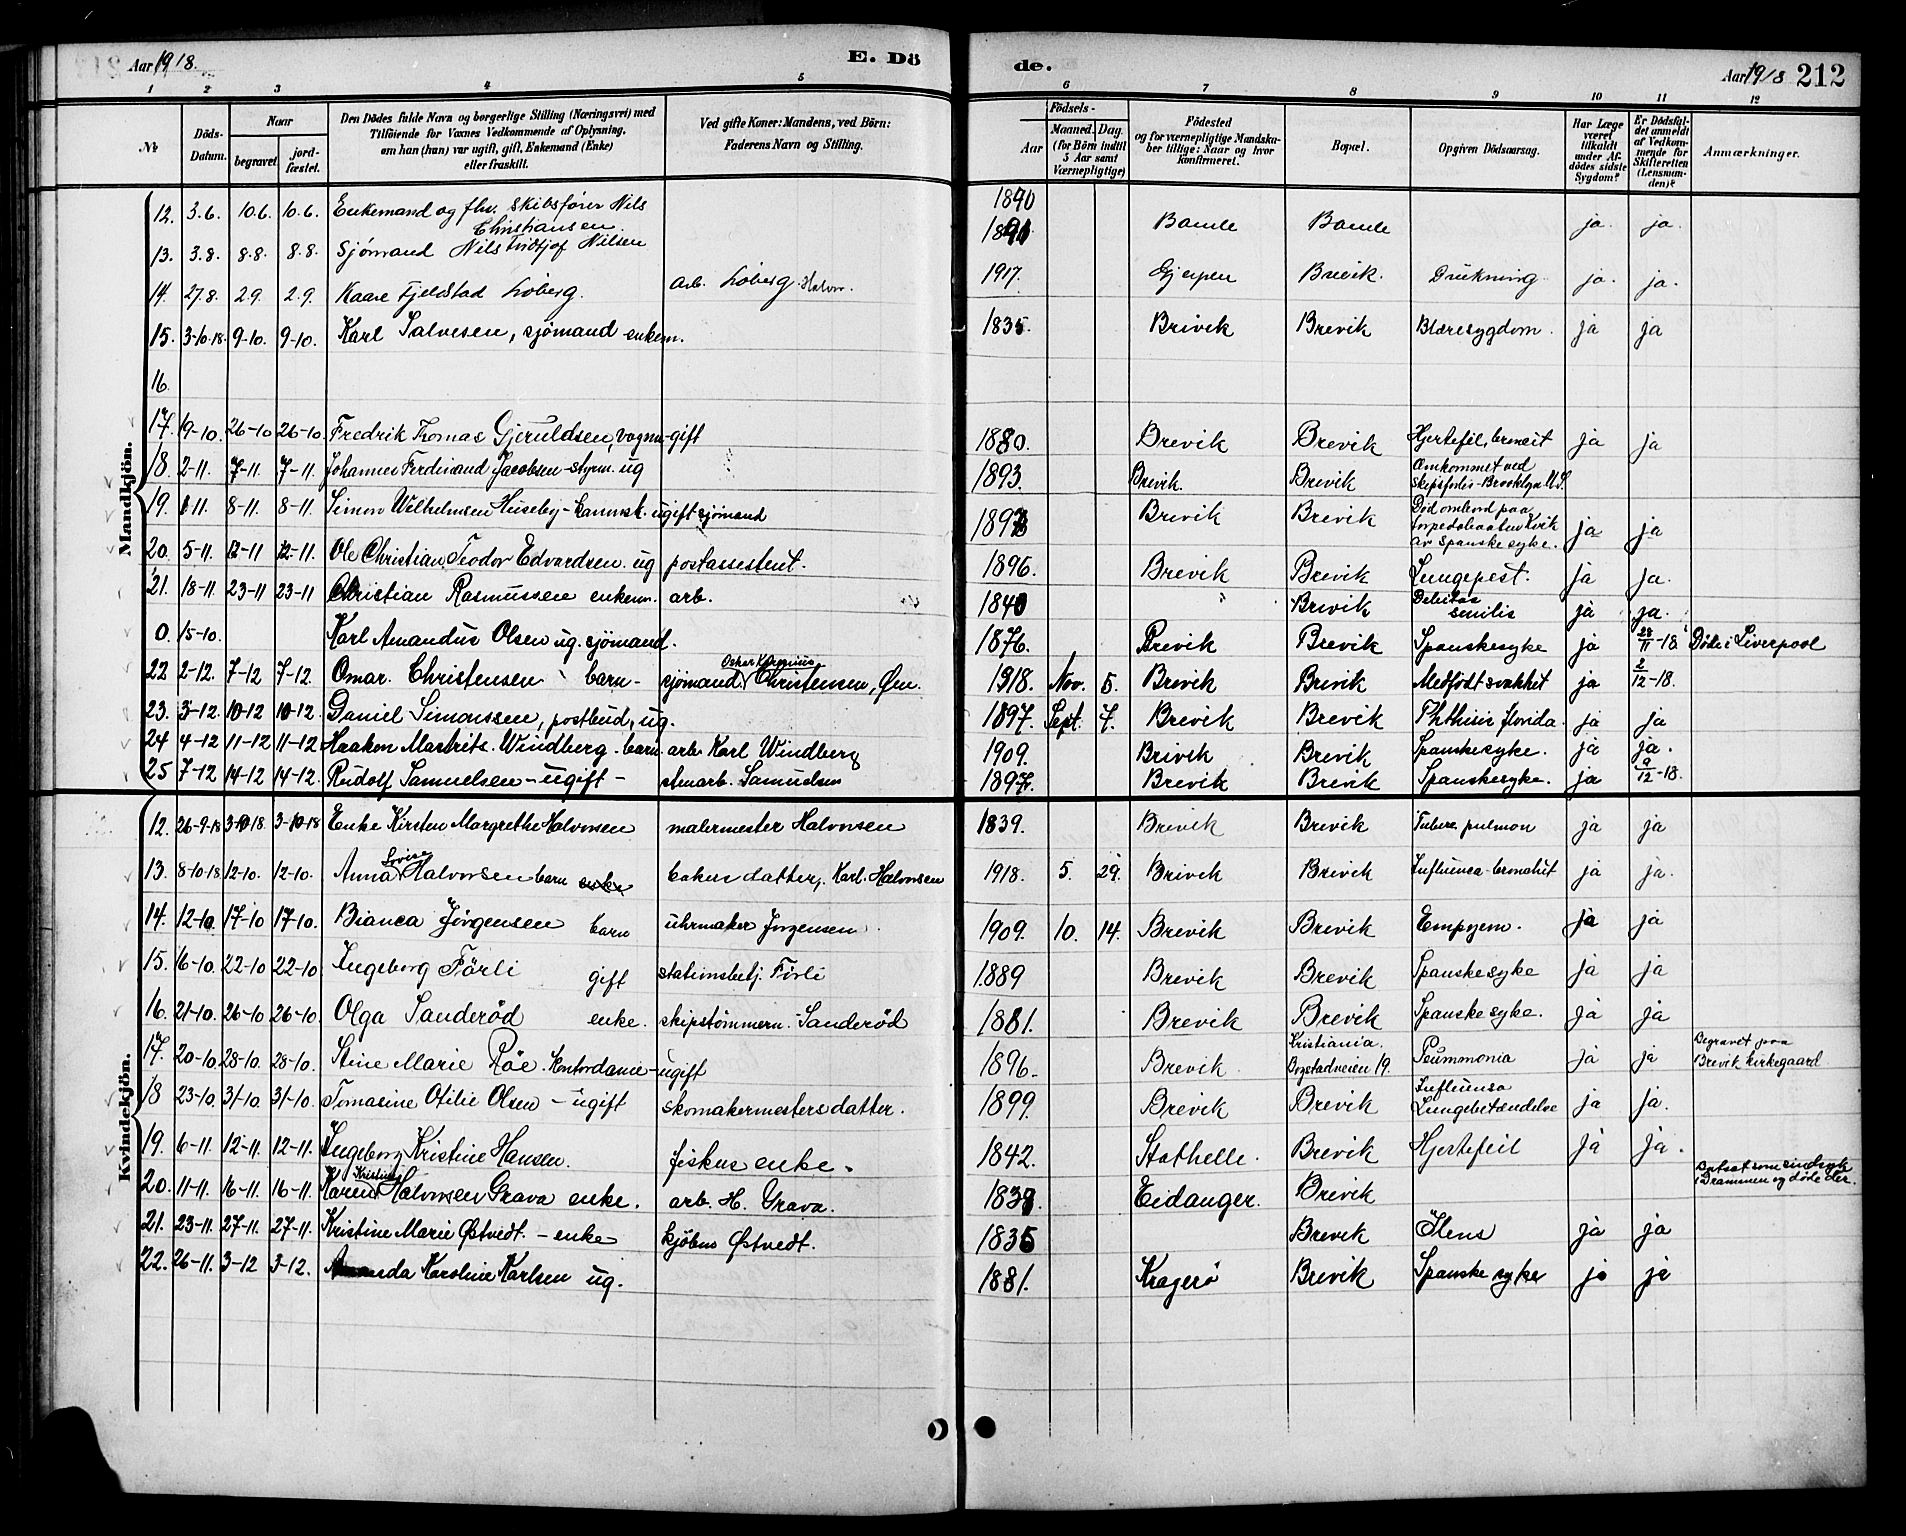 Aar 1918.
E. Dö
de.
Aar 1918 212
1 2 3 4 5 6 7 8 9 10 11 12
No
Döds-Datum.
Naar
begravet.
jord-fæstet.
Den Dödes fulde Navn og borgerlige Stilling (Næringsvei) med
Tilföiende for Voxnes Vedkommende af Oplysning,
om han (hun) var ugift, gift, Enkemand (Enke)
eller fraskilt.
Ved gifte Koner: Mandens, ved Börn:
Faderens Navn og Stilling.
Födsels-
Aar
Maaned. Dag.
(for Börn indtil
5 Aar samt
Værnepligtige)
Födested
og for værnepligtige Mandska-
ber tillige: Naar og hvor
konfirmeret.
Bopæl.
Opgiven Dödsaarsag.
Har Læge
været
tilkaldt
under Af-
dödes sidste
Sygdom?
Er Dödsfal-
det anmeldt
af Vedkom-
mende for
Skifteretten
(Lensman-
den)?
Anmærkninger.
Mandkjön.
12. 3.6. 10.6. 10.6. Enkemand og fhv. Skibsfører Nils Christiansen. 1890
13. 3.8. 8.8. 8.8. Sjómand Nils Fridtjof Nilsen 1891 Bamle Bamle ja. ja.
14. 27.8. 2.9. 2.9. Kaare Fjeldstad Loberg. arb. Loberg. Halvor. 1917. Gjerpen Brevik. Drukning ja. ja.
15. 3-10-18. 9-10. 9-10. Karl Salvesen, sjömand enkem. 1835. Brevik Brevik Blæresygdom. ja ja
16.
17. 19-10. 26-10 26-10 Fredrik Thomas Gjeruldsen, vognm-gift 1880. Brevik Brevik Hjertefeil, ja ja
18. 2-11. 7-11. 7-11. Johannes Ferdinand Jacobsen-styrm. ug 1893. Brevik. Brevik Omkommet ved Skipsforlis-Brooklyn
19. 11. 8-11. 8-11. Simon Wilhelmsen Huseby - ugift sjömand Brevik Brevik Död ombord paa torpedobaaten Kvik av Spanske syke. ja ja
20. 5-11. 12-11 12-11. Ole Christian Teodor Edvardsen. ug postassestent. 1896. Brevik Brevik Lungepest. ja ja.
21. 18-11. 23-11 23-11 Christian Rasmussen enkem. arb. 1840 " Brevik senilis ja ja.
0. 15-10. Karl Amandus Olsen ug. sjömand. 1876. Brevik Brevik Spanskesyke ja 28/11-18. Döde i Liverpool
22 2-12. 7-12 7-12. Omar. Christensen barn- sjömand Oskar Christensen, 1918. Nov. 5. Brevik Brevik Medfödt svakhet ja 2/12-18.
23. 3-12. 10-12 10-12. Daniel Simonssen, postbud, ug. 1897. Sept. 7. Brevik Brevik Phthisis florida. ja ja
24 4-12 11-12 11-12. Haakon Windberg. barn. arb. Karl Windberg 1909. Brevik Brevik Spanskesyke. ja ja.
25 7-12 14-12 14-12. Rudolf Samuelsen - ugift - stenarb. Samuelsen 1897. Brevik Brevik Spanskesyke. ja 9/12-18.
Kvindekjön.
12. 26-9-18 3-10-18. 3-10-18 Enke Kirsten Margrethe Halvorsen malermester Halvorsen 1839. Brevik Brevik Tuberc. pulmon ja ja
13. 8-10-18 12-10. 12-10. Anna Lovise Halvorsen barn enke bakers datter, Karl. Halvorsen 1918. 5. 29. Brevik Brevik ja ja.
14. 12-10. 17-10 17-10. Bianca Jörgensen barn uhrmaker Jörgensen. 1909. 10. 14. Brevik Brevik Empyem. ja ja
15. 16-10. 22-10 22-10 Ingeborg Förli gift stationsbetj. Förli 1889 Brevik Brevik Spanske syke ja ja
16. 21-10. 26-10 26-10. Olga Sanderöd enke. skipstömmerm. Sanderöd 1881. Brevik Brevik Spanske syke. ja ja
17. 20-10. 28-10. 28-10. Stine Marie Röe. Kontordame-ugift 1896. Brevik. Kristiania. Bogstadveien 19. Peummonia ja ja Begravet paa Brevik kirkegaard
18 23-10. 31-10. 31-10. Tomasine Otilie Olsen - ugift skomakermesters datter. 1899. Brevik Brevik Influensa Lungebetændelse ja ja.
19. 6-11. 12-11. 12-11. Ingeborg Kristine Hansen. fiskers enke. 1842. Stathelle. Brevik Hjertefeil ja ja.
20. 11-11. 16-11. 16-11. Karen Kristine Halvorsen Grava enke. arb. H. Grava. Eidanger. Brevik Bortsat som sindssyk i Drammen og döde der.
21. 23-11. 27-11. 27-11. Kristine Marie Østvedt. - enke kjöbm Østvedt. 1835 Brevik Ilens ja ja
22. 26-11. 3-12 3-12. Amanda Karoline Karlsen ug. 1881. Kragerö Brevik Spanske syke ja ja